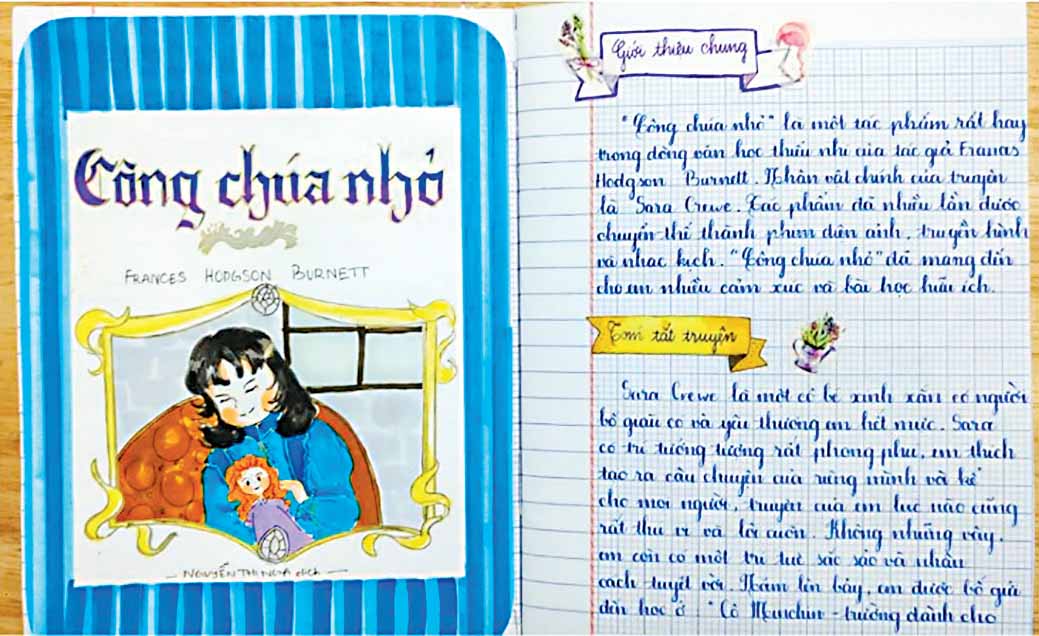 Công chúa nhỏ
FRANCES HODGSON BURNETT
NGUYỄN THỊ NGA dịch
Giới thiệu chung
"Công chúa nhỏ" là một tác phẩm rất hay
trong dòng văn học thiếu nhi của tác giả Frances
Hodgson Burnett. Nhân vật chính của truyện
là Sara Crewe. Tác phẩm đã nhiều lần được
chuyển thể thành phim điện ảnh, truyền hình
và nhạc kịch. "Công chúa nhỏ" đã mang đến
cho em nhiều cảm xúc và bài học hữu ích.
Tóm tắt truyện
Sara Crewe là một cô bé xinh xắn có người
bố giàu có và yêu thương em hết mực. Sara
có trí tưởng tượng rất phong phú, em thích
tạo ra câu chuyện của riêng mình và kể
cho mọi người, truyện của em lúc nào cũng
rất thú vị và lôi cuốn. Không những vậy,
em còn có một trí tuệ sắc sảo và nhân
cách tuyệt vời. Năm lên bảy, em được bố gửi
đến học ở "Cô Minchin - trường dành cho